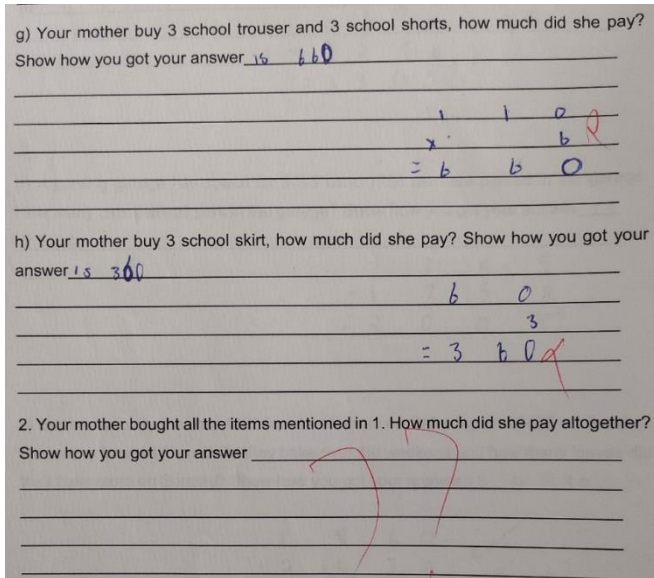 g) Your mother buy 3 school trouser and 3 school shorts, how much did she pay?
Show how you got your answer is 660
1 1 0
x 6
= 6 6 0
h) Your mother buy 3 school skirt, how much did she pay? Show how you got your
answer is 360
6 0
3
= 3 6 0
2. Your mother bought all the items mentioned in 1. How much did she pay altogether?
Show how you got your answer
??